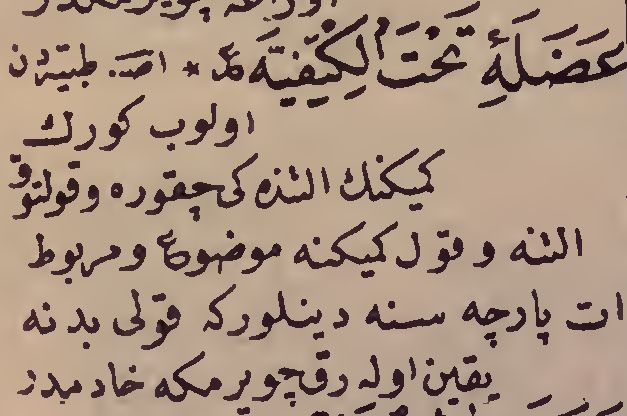 عَضَلَهٔ تَحْتَ الْكِتْفِيَّهْ ع * اصـ. طبيه‌دن
اولوب كورك
كميكنك التنده كى چقوره و قولتوق
التنه و قول كميكنه موضوع و مربوط
ات پارچه سنه دينلوركه قولى بدنه
يقين اوله رق چويرمكه خادمدر